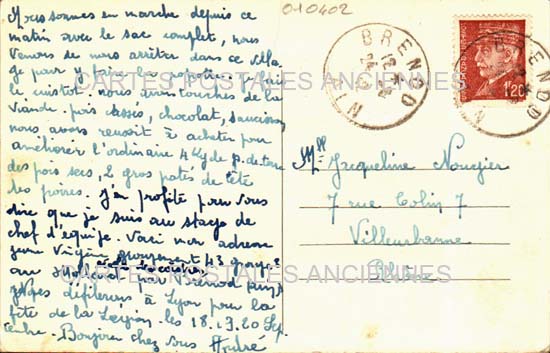 Nous sommes en marche depuis ce
matin avec le sac complet, nous
Venons de nous arrêter dans ce villa
ge pour y faire la popotte. Je suis
le cuistot. nous avons touchés de la
Viande. pois cassés, chocolat, saucisson
nous avons reussit à acheter pour
améliorer l'ordinaire 4 kg de p. de terre
des pois secs, 2 gros patés de tête
des poires. J'en profite pour vous
dire que je suis au stage de
chef d'équipe. Voici mon adresse
groupement 43 groupe 2
par
Nous défilerons à Lyon pour la
fête de la Legion. les 18.19.20 Sep
tembre. Bonjour chez vous André
010402
BRENOD
AIN
1F20
Mlle Jacqueline Nougier
7 rue Colin 7
Villeurbanne
Rhône
CARTES POSTALES ANCIENNES
CARTES POSTALES ANCIENNES